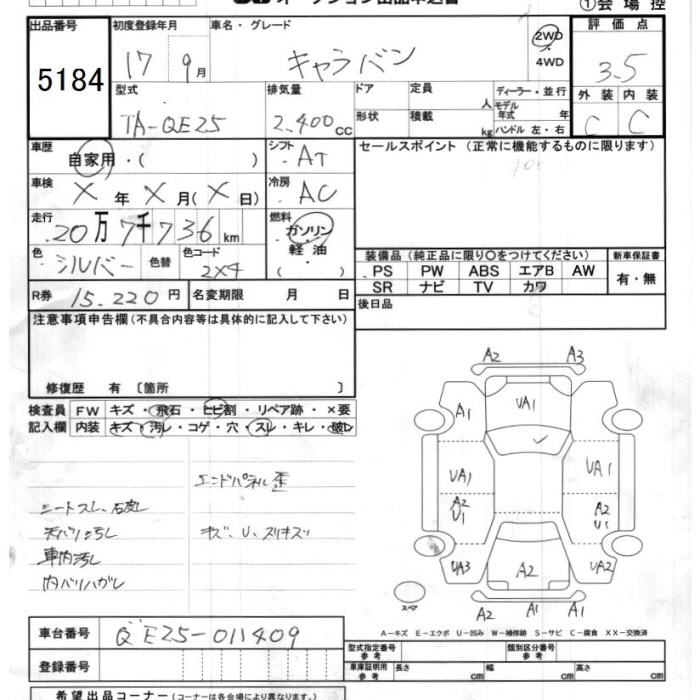 オークション出品申込書
①会場控
出品番号 初度登録年月 車名・グレード 評価点
5184 17 9月 キャラバン 2WD 4WD 3.5
型式 排気量 ドア 定員 人 ディーラー・並行 外装 内装
TA-QE25 2,400cc 形状 積載 kg モデル年式 年 C C
ハンドル 左・右
車歴 シフト セールスポイント (正常に機能するものに限ります)
自家用・( ) AT
車検 冷房
X年X月(X日) AC
走行 燃料
20万7千736km ガソリン
軽油
色 色替 色コード ・
シルバー 2x4
装備品 (純正品に限り〇をつけてください) 新車保証書
PS PW ABS エアB AW 有・無
SR ナビ TV カワ
R券 15.220円 名変期限 月 日 後日品
注意事項申告欄(不具合内容等は具体的に記入して下さい)
修復歴 有 〔箇所 〕
検査員 FW キズ・飛石・ヒビ割・リペア跡・×要
記入欄 内装 キズ・汚レ・コゲ・穴・スレ・キレ・破レ
エンドパネル歪
シートスレ、石皮レ
天バリ汚レ キズ、U、スリキズリ
車内汚レ
内バリハガレ
A2 A3
A1 UA1
UA1 UA1
A2 A2
U1 U1
UA3 A2 UA2
スペア
A2 A1 A1
A-キズ E-エクボ U-凹み W-補修跡 S-サビ C-腐食 XX-交換済
車台番号 QE25-011409
登録番号
型式指定番号 参考 類別区分番号 参考
車庫証明用 参考 長さ cm 幅 cm 高さ cm
希望出品コーナー(コーナーは各会場により異なります。)